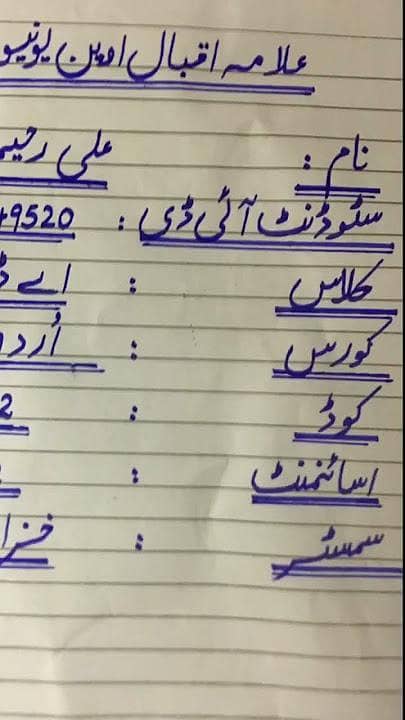 علامہ اقبال اوپن
نام : علی
سٹوڈنٹ آئی ڈی : 49520
کلاس : اے
کورس : اُردو
کوڈ : 2
اسائنمنٹ :
سمسٹر :